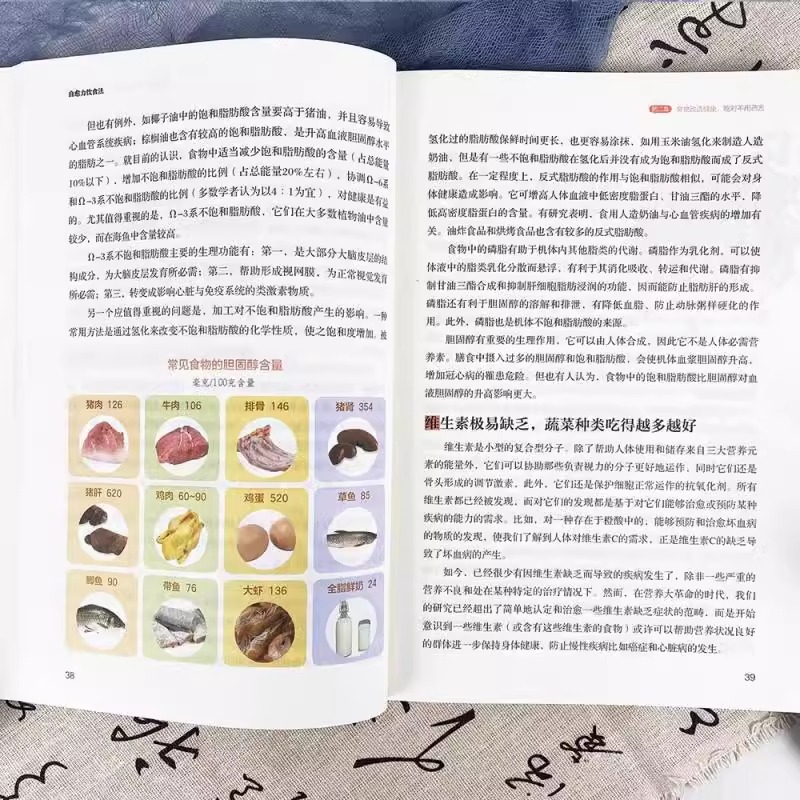 自愈力饮食法
但也有例外，如椰子油中的饱和脂肪酸含量要高于猪油，并且容易导致
心血管系统疾病；棕榈油也含有较高的饱和脂肪酸，是升高血液胆固醇水平
的脂肪之一。就目前的认识，食物中适当减少饱和脂肪酸的含量（占总能量
10%以下），增加不饱和脂肪酸的比例（占总能量20%左右），协调Ω-6系
和Ω-3系不饱和脂肪酸的比例（多数学者认为以4：1为宜），对健康是有益
的。尤其值得重视的是，Ω-3系不饱和脂肪酸，它们在大多数植物油中含量
较少，而在海鱼中含量较高。
Ω-3系不饱和脂肪酸主要的生理功能有：第一，是大部分大脑皮层的结
构成分，为大脑皮层发育所必需；第二，帮助形成视网膜，为正常视觉发育
所必需；第三，转变成影响心脏与免疫系统的类激素物质。
另一个应值得重视的问题是，加工对不饱和脂肪酸产生的影响。一种
常用方法是通过氢化来改变不饱和脂肪酸的化学性质，使之饱和度增加。被
常见食物的胆固醇含量
毫克/100克含量
猪肉 126
牛肉 106
排骨 146
猪肾 354
猪肝 620
鸡肉 60~90
鸡蛋 520
草鱼 85
鲫鱼 90
带鱼 76
大虾 136
全脂鲜奶 24
38
第二章
氢化过的脂肪酸保鲜时间更长，也更容易涂抹，如用玉米油氢化来制造人造
奶油，但是有一些不饱和脂肪酸在氢化后并没有成为饱和脂肪酸而成了反式
脂肪酸。在一定程度上，反式脂肪酸的作用与饱和脂肪酸相似，可能会对身
体健康造成影响。它可增高人体血液中低密度脂蛋白、甘油三酯的水平，降
低高密度脂蛋白的含量。有研究表明，食用人造奶油与心血管疾病的增加有
关。油炸食品和烘烤食品也含有较多的反式脂肪酸。
食物中的磷脂有助于机体内其他脂类的代谢。磷脂作为乳化剂，可以使
体液中的脂类乳化分散而悬浮，有利于其消化吸收、转运和代谢。磷脂有抑
制甘油三酯合成和抑制肝细胞脂肪浸润的功能，因而能防止脂肪肝的形成。
磷脂还有利于胆固醇的溶解和排泄，有降低血脂、防止动脉粥样硬化的作
用。此外，磷脂也是机体不饱和脂肪酸的来源。
胆固醇有重要的生理作用，它可以由人体合成，因此它不是人体必需营
养素。膳食中摄入过多的胆固醇和饱和脂肪酸，会使机体血浆胆固醇升高，
增加冠心病的罹患危险。但也有人认为，食物中的饱和脂肪酸比胆固醇对血
液胆固醇的升高影响更大。
维生素极易缺乏，蔬菜种类吃得越多越好
维生素是小型的复合型分子。除了帮助人体使用和储存来自三大营养元
素的能量外，它们可以协助那些负责视力的分子更好地运作，同时它们还是
骨头形成的调节激素，此外，它们还是保护细胞正常运作的抗氧化剂。所有
维生素都已经被发现，而对它们的发现都是基于对它们能够治愈或预防某种
疾病的能力的需求。比如，对一种存在于橙酸中的，能够预防和治愈坏血病
的物质的发现，使我们了解到人体对维生素C的需求，正是维生素C的缺乏导
致了坏血病的产生。
如今，已经很少有因维生素缺乏而导致的疾病发生了，除非一些严重的
营养不良和处在某种特定的治疗情况下。然而，在营养大革命的时代，我们
的研究已经超出了简单地认定和治愈一些维生素缺乏症状的范畴，而是开始
意识到一些维生素（或含有这些维生素的食物）或许可以帮助营养状况良好
的群体进一步保持身体健康，防止慢性疾病比如癌症和心脏病的发生。
39